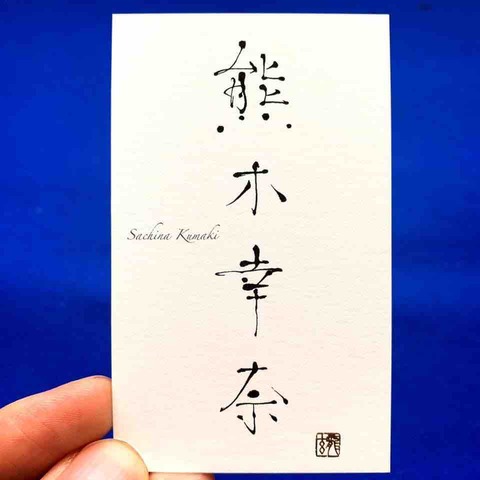 熊木幸奈
Sachina Kumaki